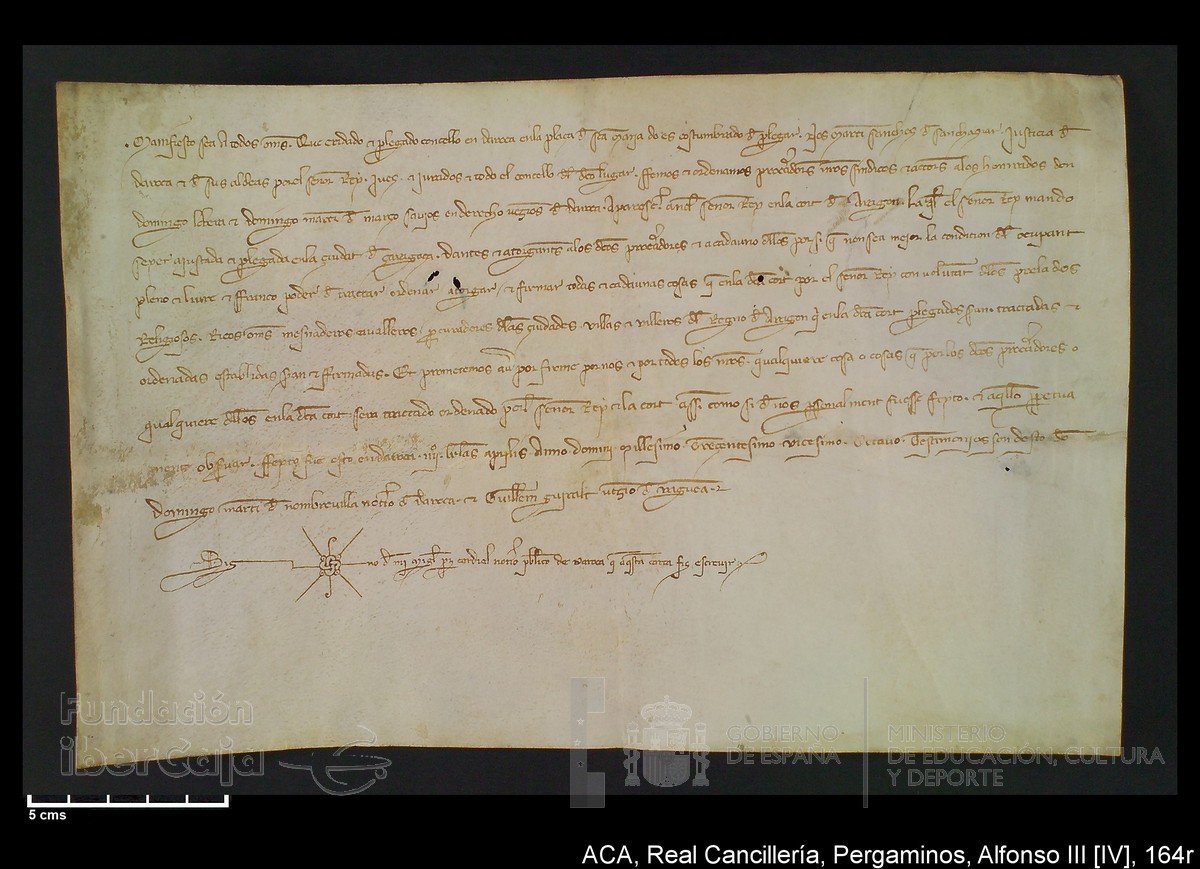 Manifiesto sea A todos oms. Que cridado & plegado concello en daroca enla plaça d sca Maria do es costumbrado d plegar. Nos Marti Sanchez d Justicia d
daroca & d sus aldeas por el senor Rey. Juez. & Jurados & todo el concello dl dto lugar. ffemos & ordenamos procadors nros sindicos & actors alos honrrados don
domingo & domingo marti d março en derecho d daroca. senor Rey enla cort d Aragon. La ql el senor Rey mando
seyer ajustada & plegada enla ciudat d Caragoça. Dantes & atorgants alos dtos procadores & a cadauno dllos por si q non sea mejor la condicion dl ocupant
pleno & liure & ffranco poder d tractar ordenar atorgar & firmar todas & cadaunas cosas q enla dta cort por el senor Rey con voluntat dlos prelados
Religiosos. Ricos oms mesnaderos caualleros, procuradores dlas ciudades villas & villeros dl Regno d Aragon q enla dta cort plegados seran tractadas &
ordenadas establidas seran & ffirmadas. Et prometemos auer por firme por nos & por todos los nros. qualquiere cosa o cosas q por los dtos procadores o
qualquiere dllos enla dta cort sera tractado ordenado por el senor Rey & la cort assi como si d nos personalment fuesse feyto. & aqllo perpetua
ment obseruar. ffeyto fue esto en daroca. kalendas aprilis Anno domini Millesimo Trecentesimo vicesimo Octauo. Testimonios son desto
Domingo marti d nombreuilla d daroca. & Guillem guiralt
Sig no d mi pz cordial notio publico de daroca q aqsta carta fiz escreuir
Fundación
iberCaja
GOBIERNO
DE ESPAÑA
MINISTERIO
DE EDUCACIÓN, CULTURA
Y DEPORTE
5 cms
ACA, Real Cancillería, Pergaminos, Alfonso III [IV], 164r